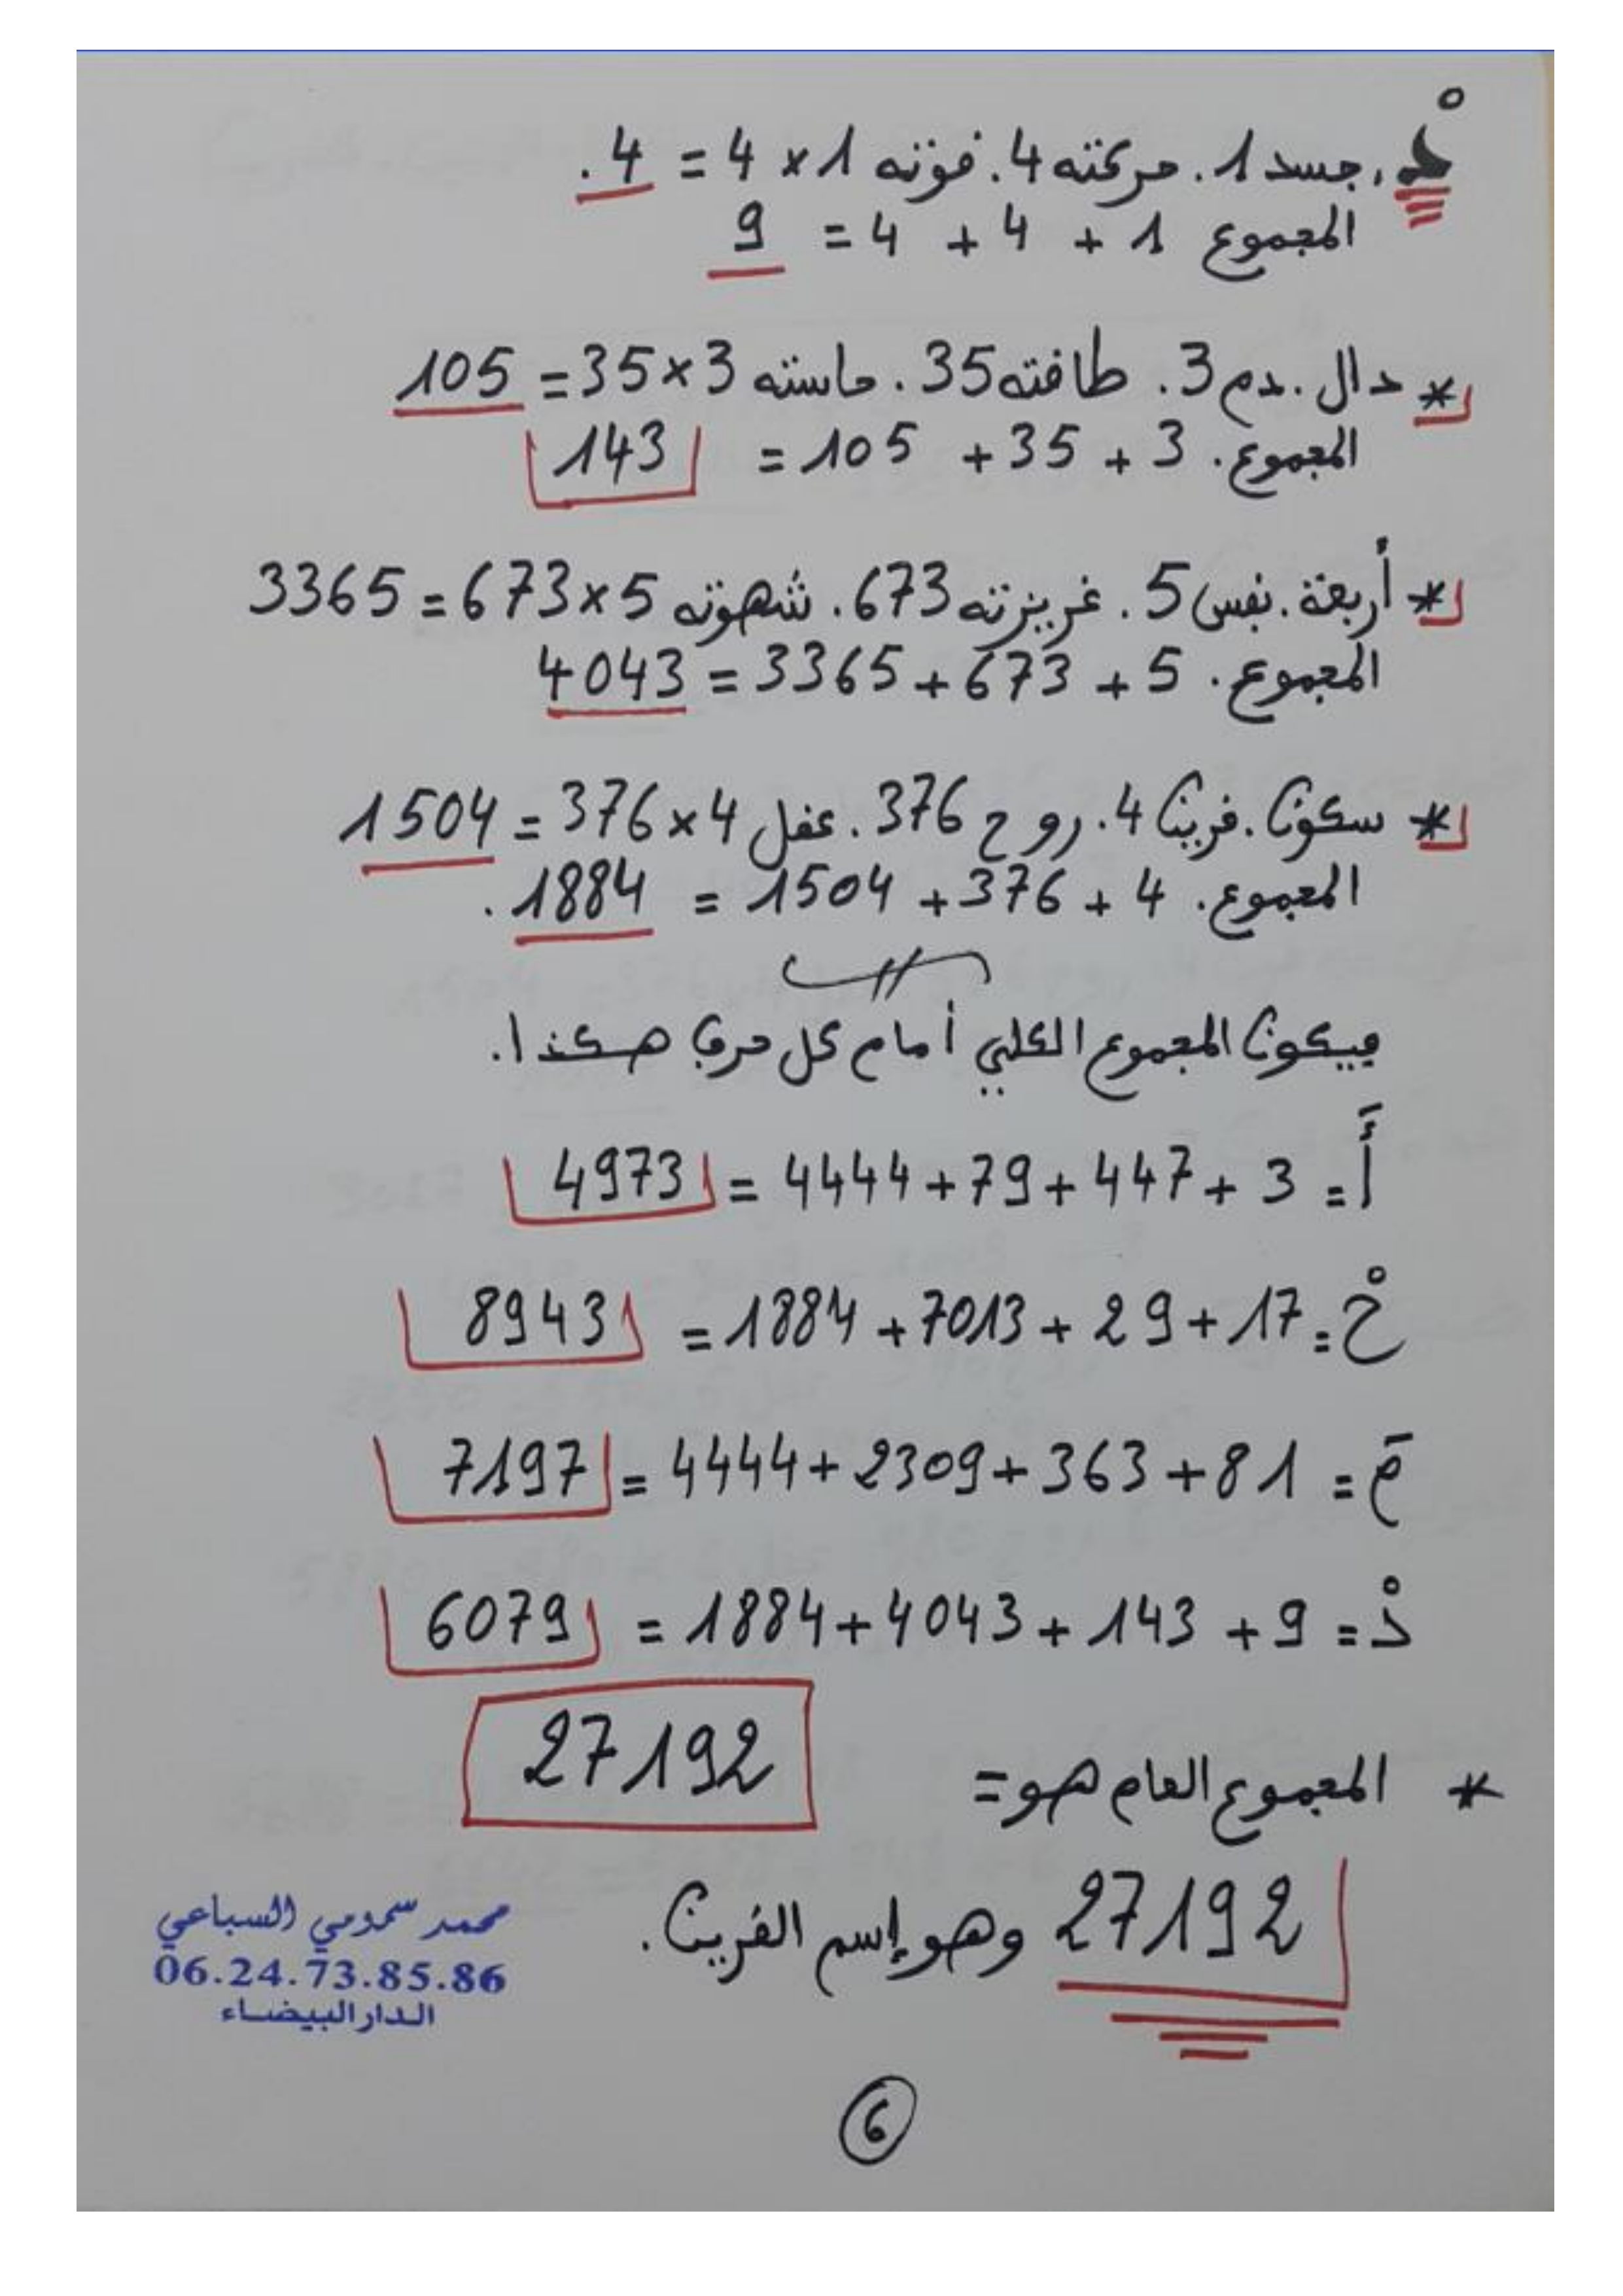 دْ. جسد 1. حركته 4. قوته 1 × 4 = 4.
المجموع 1 + 4 + 4 = 9
* دال. دم 3. طاقته 35. حاسته 3 × 35 = 105
المجموع. 3 + 35 + 105 = 143
* أربعة. نفس 5. غريزته 673. شهوته 5 × 673 = 3365
المجموع. 5 + 673 + 3365 = 4043
* سكون. قرين 4. روح 376. عقل 4 × 376 = 1504
المجموع. 4 + 376 + 1504 = 1884.
فيكون المجموع الكلي أمام كل حرف هكذا.
أَ = 3 + 447 + 79 + 4444 = 4973
حْ = 17 + 29 + 7013 + 1884 = 8943
مَ = 81 + 363 + 2309 + 4444 = 7197
دْ = 9 + 143 + 4043 + 1884 = 6079
* المجموع العام هو = 27192
27192 وهو إسم القرين.
محمد سمومي السباعي
06.24.73.85.86
الدار البيضاء
6